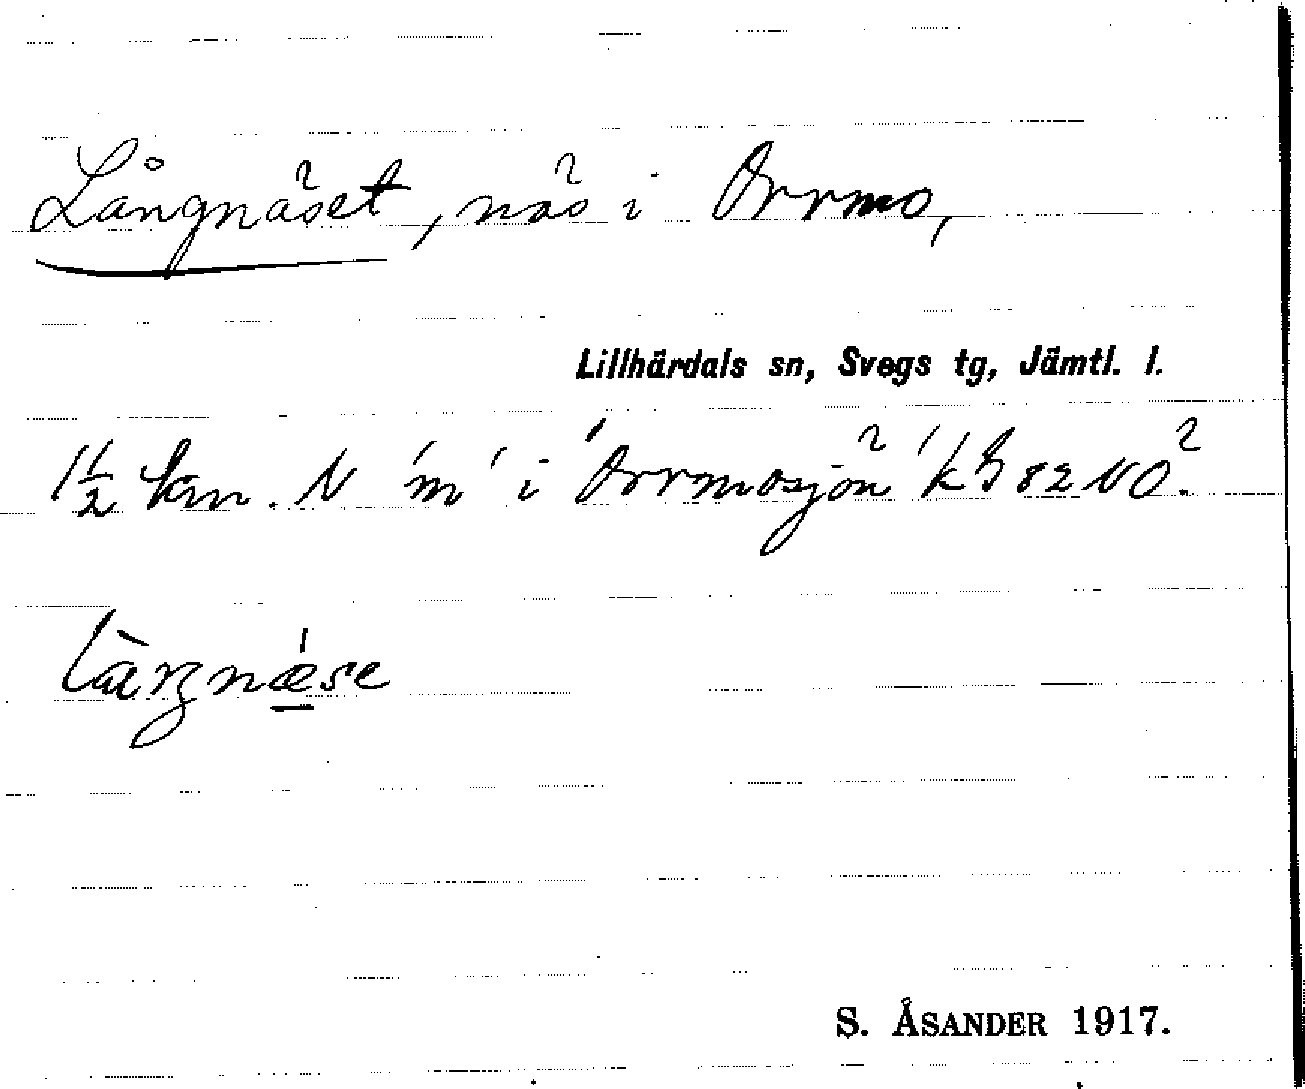 Långnäset, näs i Orrmo,
Lillhärdals sn, Svegs tg, Jämtl. l.
1½ km. N 'm' i 'Orrmosjön' k 82 NO.
S. ÅSANDER 1917.